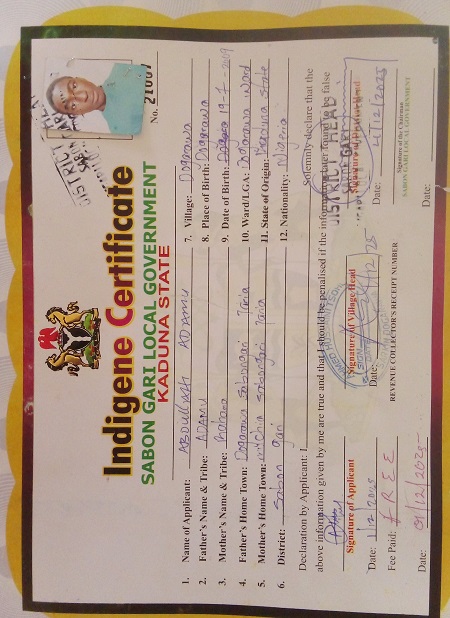 Indigene Certificate
SABON GARI LOCAL GOVERNMENT
KADUNA STATE
No. 21007
1. Name of Applicant: ABDULLAHI ADAMU
2. Father's Name & Tribe: ADAMU
3. Mother's Name & Tribe:
4. Father's Home Town: Dogarawa Sabongari Zaria
5. Mother's Home Town: Sabongari Zaria
6. District: Sabon Gari
7. Village: Dogarawa
8. Place of Birth: Dogarawa
9. Date of Birth: 19-7-2009
10. Ward/LGA: Dogarawa Ward
11. State of Origin: Kaduna State
12. Nationality: Nigeria
Declaration by Applicant: I Solemnly declare that the
above information given by me are true and that I should be penalised if the information is later found to be false
Signature of Applicant
Date: 1/12/2025
Signature of Village Head
Date:
Signature of District Head
Date: 4/12/2025
Fee Paid: FREE
REVENUE COLLECTOR'S RECEIPT NUMBER
Signature of the Chairman
SABON GARI LOCAL GOVERNMENT
Date: 01/12/2025
Date: